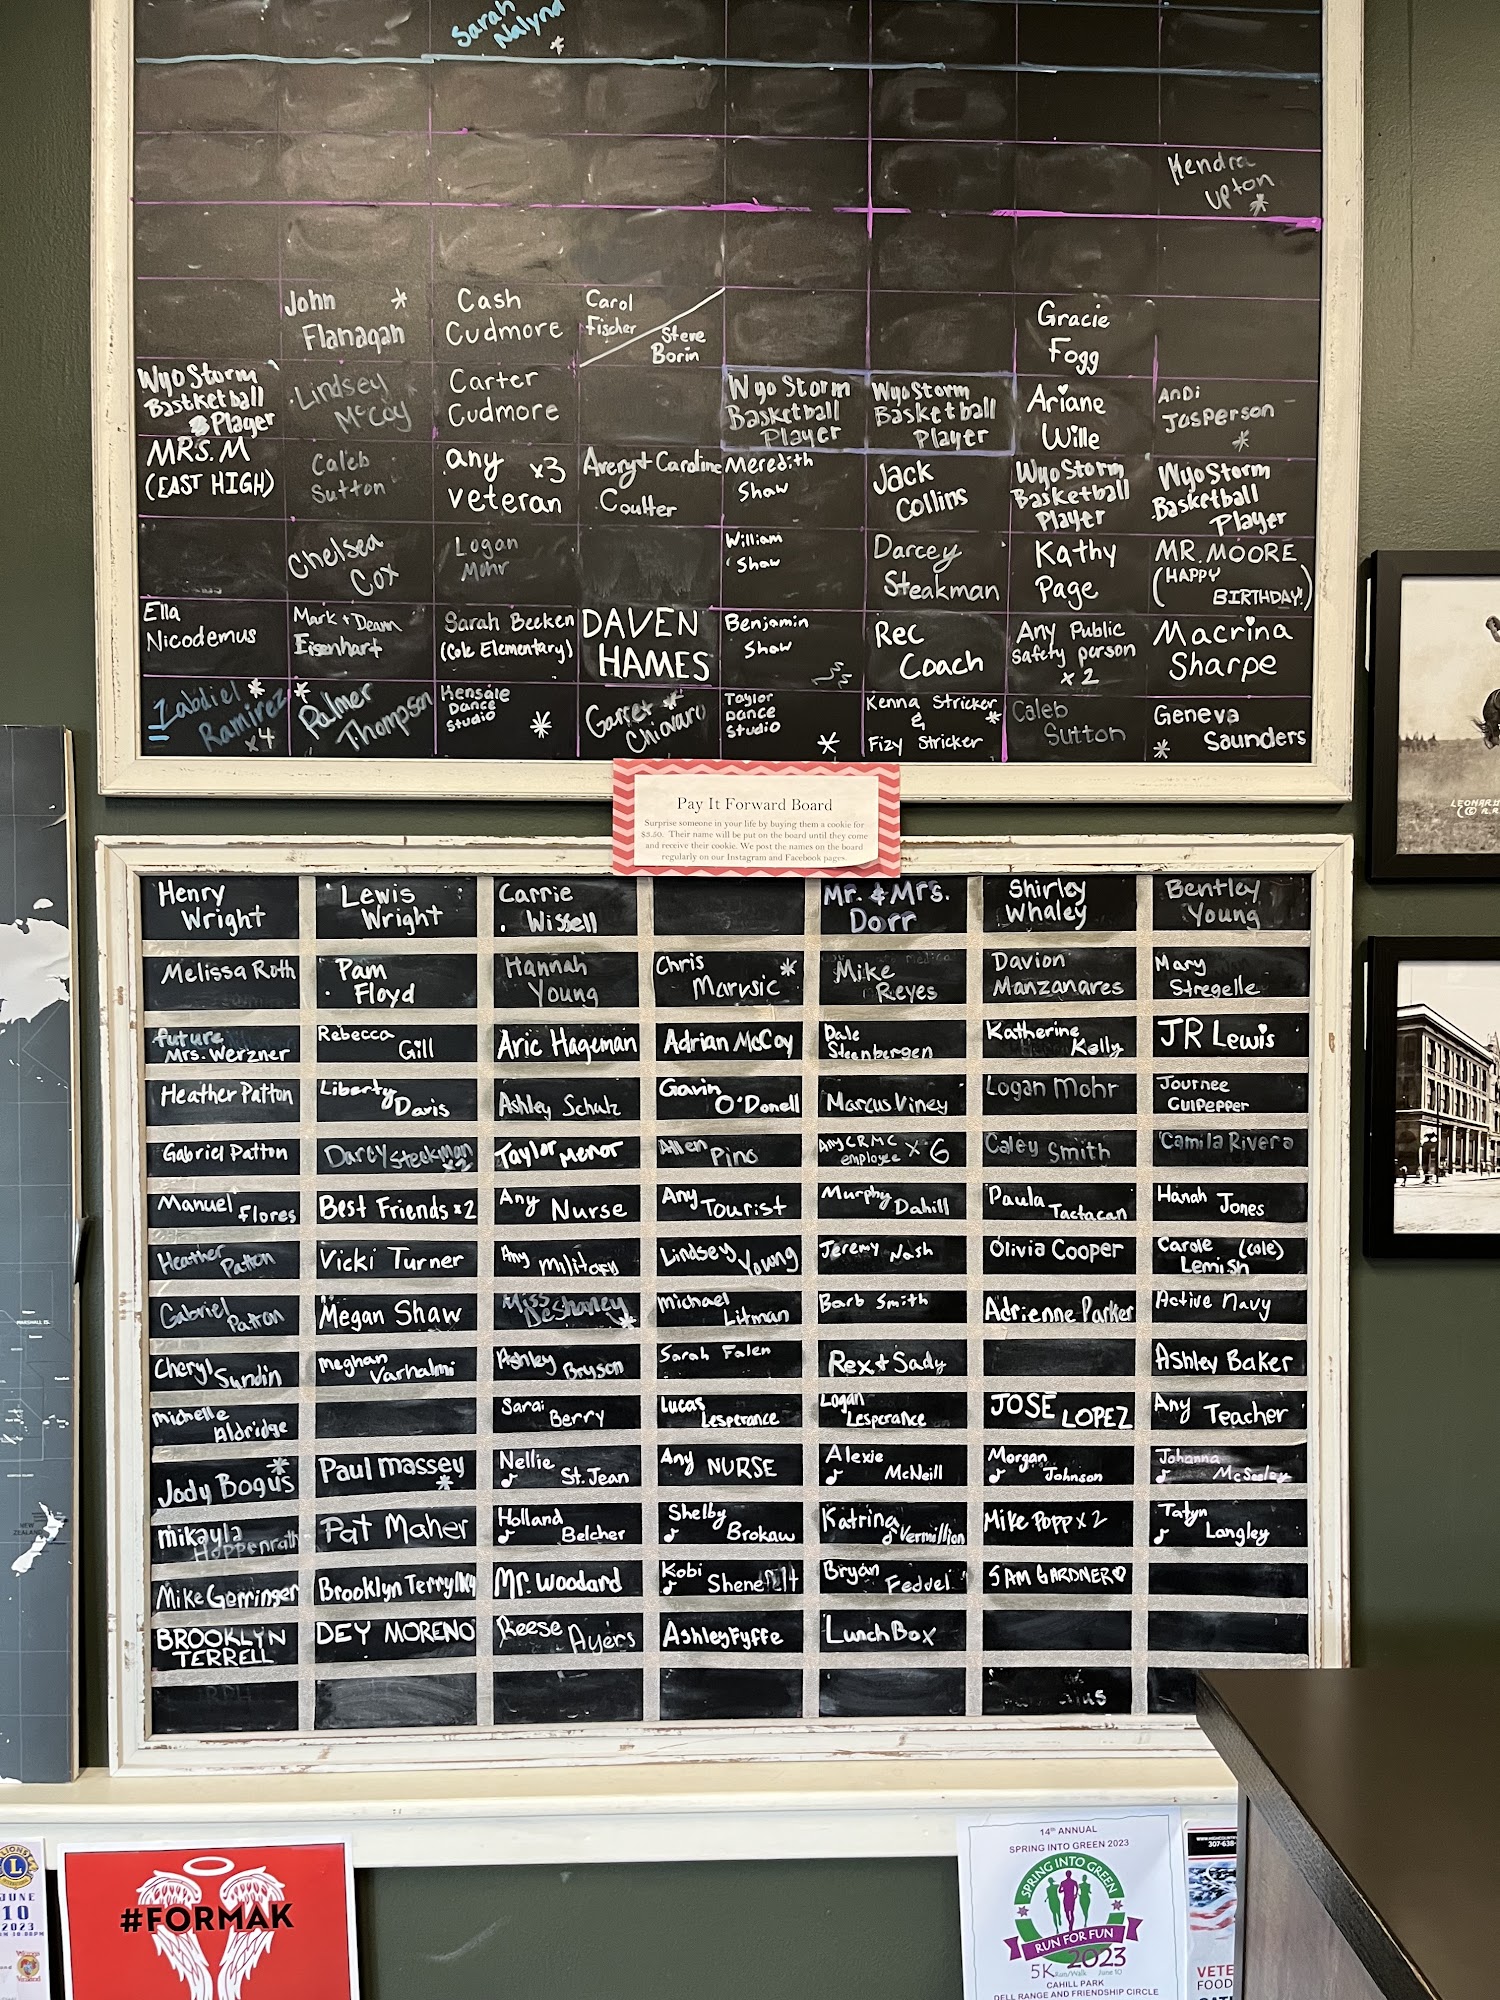 Sarah
Nalynd *
Kendra
Upton *
John *
Flanagan
Cash
Cudmore
Carol
Fischer
Steve
Borin
Gracie
Fogg
Wyo Storm
Bastketball
Player
Lindsey
McCoy
Carter
Cudmore
Wyo Storm
Basketball
Player
WyoStorm
Basketball
Player
Ariane
Wille
ANDi
Jasperson
*
MRS. M
(EAST HIGH)
Caleb
Sutton
any x3
veteran
Avery + Caroline
Coulter
Meredith
Shaw
Jack
Collins
Wyo Storm
Basketball
Player
Wyo Storm
Basketball
Player
Chelsea
Cox
Logan
Mohr
William
Shaw
Darcey
Steakman
Kathy
Page
MR. MOORE
(HAPPY
BIRTHDAY!)
Ella
Nicodemus
Mark + Deann
Eisenhart
Sarah Becken
(Cole Elementary)
DAVEN
HAMES
Benjamin
Shaw
Rec
Coach
Any Public
Safety person
x 2
Macrina
Sharpe
Zabdiel *
Ramirez
x4
* Palmer
Thompson
Hensale
Dance
Studio *
Garret *
Chiavaro
Taylor
Dance
Studio *
Kenna Stricker
& *
Fizy Stricker
Caleb
Sutton
Geneva
* Saunders
Pay It Forward Board
Surprise someone in your life by buying them a cookie for
$3.50. Their name will be put on the board until they come
and receive their cookie. We post the names on the board
regularly on our Instagram and Facebook pages.
Henry
Wright
Lewis
Wright
Carrie
Wissell
Mr. & Mrs.
Dorr
Shirley
Whaley
Bentley
Young
Melissa Roth
Pam
Floyd
Hannah
Young
Chris *
Marusic
Mike
Reyes
Davion
Manzanares
Mary
Stregelle
future
Mrs. Werzner
Rebecca
Gill
Aric Hageman
Adrian McCoy
Dale
Steenbergen
Katherine
Kelly
JR Lewis
Heather Patton
Liberty
Davis
Ashley Schulz
Gavin
O'Donell
Marcus Viney
Logan Mohr
Journee
Culpepper
Gabriel Patton
Darcy Steekman
x2
Taylor Menor
Allen
Pino
Any CRMC
employee x 6
Caley Smith
Camila Rivera
Manuel
Flores
Best Friends x2
Any Nurse
Any
Tourist
Murphy
Dahill
Paula
Tactacan
Hanah
Jones
Heather
Patton
Vicki Turner
Any Military
Lindsey
Young
Jeremy Nash
Olivia Cooper
Carole (Cole)
Lemish
Gabriel
Patton
Megan Shaw
Miss
DeShaney
*
Michael
Litman
Barb Smith
Adrienne Parker
Active Navy
Cheryl
Sundin
Meghan
Varhalmi
Ashley
Bryson
Sarah Falen
Rex + Sady
Ashley Baker
Michelle
Aldridge
Sarai
Berry
Lucas
Lesperance
Logan
Lesperance
JOSE
LOPEZ
Any Teacher
*
Jody Bogus
Paul Massey
*
Nellie
♪ St. Jean
Any NURSE
Alexie
♪ McNeill
Morgan
♪ Johnson
Johanna
♪ McSeeley
Mikayla
Hoppenrath
Pat Maher
Holland
♪ Belcher
Shelby
♪ Brokaw
Katrina
♪ Vermillion
Mike Popp x 2
Tatyn
♪ Langley
Mike Gerringer
Brooklyn Terry
Mr. Woodard
Kobi
♪ Shenefelt
Bryan
Feddel
SAM GARDNER♡
BROOKLYN
TERRELL
DEY MORENO
Reese
Ayers
Ashley Fyffe
Lunch Box
LEONARD
LIONS
L
JUNE
10
2023
#FORMAK
14th ANNUAL
SPRING INTO GREEN 2023
SPRING INTO GREEN
RUN FOR FUN
2023
5K Run/Walk June 10
CAHILL PARK
DELL RANGE AND FRIENDSHIP CIRCLE
307-638-
VETE
FOOD
NEW
ZEALAND